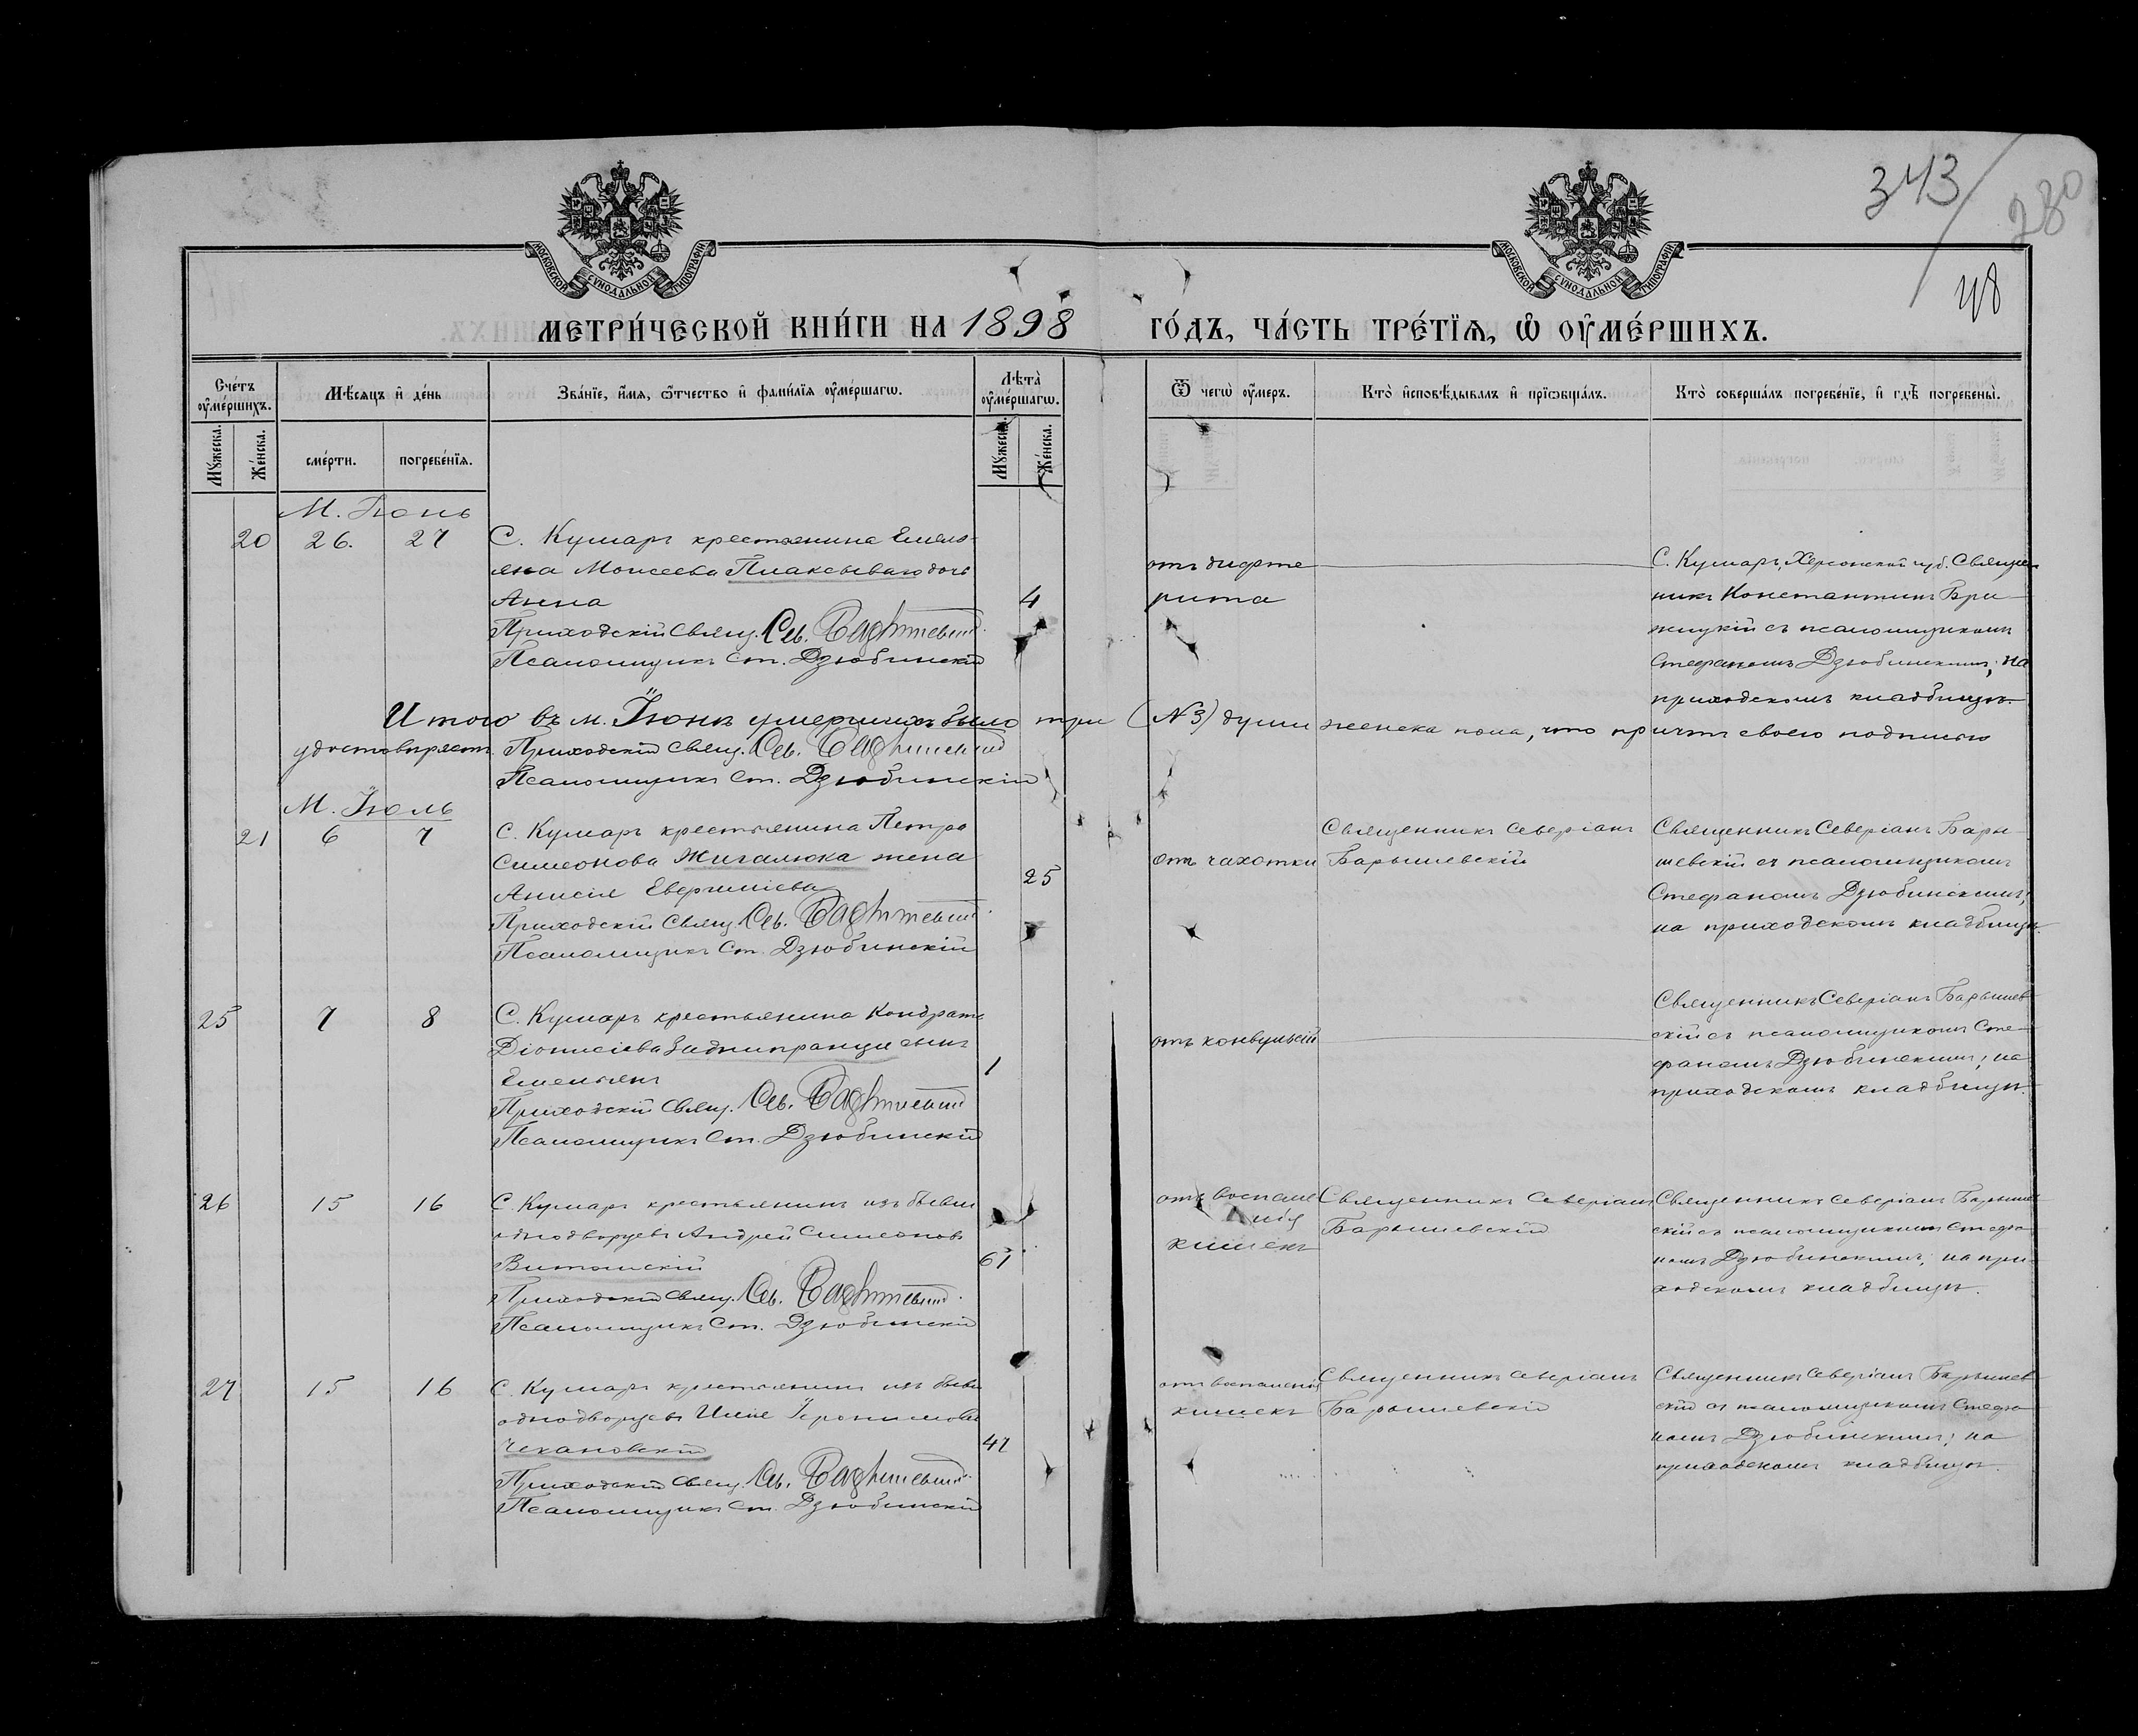 343
280
48
МОСКОВСКОЙ СУНОДАЛЬНОЙ ТИПОГРАФІИ
МОСКОВСКОЙ СУНОДАЛЬНОЙ ТИПОГРАФІИ
МЕТРИ́ЧЕСКОЙ КНИ́ГИ НА 1898 ГО́ДЪ, ЧА́СТЬ ТРЕ́ТЇѦ, Ѡ҆ ОУ҆МЕ́РШИХЪ.
Сче́тъ оу҆ме́ршихъ.
Мѣ́сѧцъ и҆ де́нь
Зва́нїе, и҆́мѧ, ѻ҆́тчество и҆ фами́лїѧ оу҆ме́ршагѡ.
Лѣта̀ оу҆ме́ршагѡ.
Ѿ чегѡ̀ оу҆́меръ.
Кто̀ и҆сповѣ́дывалъ и҆ прїѡбща́лъ.
Кто̀ соверша́лъ погребе́нїе, и҆ гдѣ̀ погребены̀.
Мꙋ́жеска.
Же́нска.
сме́рти.
погребе́нїѧ.
Мꙋ́жеска.
Же́нска.
М. Іюнь
20 26. 27 С. Кумаръ крестьянина Емель-
яна Моисеева Плаксываго дочь
Анна 4
Приходскій Свящ. Св.
Псаломщикъ Ст. Дзюбинскій
отъ дифте
рита
С. Кумаръ, Херсонской губ. Священ
никъ Константинъ Бри-
жицкій съ псаломщикомъ
Стефаномъ Дзюбинскимъ; на
приходскомъ кладбищѣ.
Итого въ м. Іюнѣ умершихъ было три (№ 3) души женска пола, что причтъ своею подписью
удостовѣряетъ. Приходскій Свящ. Св.
Псаломщикъ Ст. Дзюбинскій
М. Іюль
21 6 7 С. Кумаръ крестьянина Петра
Симеонова Жигалюка жена
Анисія 25
Приходскій Свящ. Св.
Псаломщикъ Ст. Дзюбинскій
отъ чахотки
Священникъ Северіанъ
Барышевскій
Священникъ Северіанъ Бары-
шевскій съ псаломщикомъ
Стефаномъ Дзюбинскимъ;
на приходскомъ кладбищѣ.
25 7 8 С. Кумаръ крестьянина Кондрата
Діонисіева сынъ
Емельянъ 1
Приходскій Свящ. Св.
Псаломщикъ Ст. Дзюбинскій
отъ конвульсій
Священникъ Северіанъ Барышев-
скій съ псаломщикомъ Сте-
фаномъ Дзюбинскимъ; на
приходскомъ кладбищѣ.
26 15 16 С. Кумаръ крестьянинъ изъ бывш
однодворцевъ Андрей Симеоновъ
Витомскій 67
Приходскій Свящ. Св.
Псаломщикъ Ст. Дзюбинскій
отъ воспале
нія
кишекъ
Священникъ Северіанъ
Барышевскій
Священникъ Северіанъ Барышев
скій съ псаломщикомъ Стефа
номъ Дзюбинскимъ; на при-
ходскомъ кладбищѣ.
27 15 16 С. Кумаръ крестьянинъ изъ бывш
однодворцевъ Илія Іеронимовъ
Чекановскій 47
Приходскій Свящ. Св.
Псаломщикъ Ст. Дзюбинскій
отъ воспаленія
кишекъ
Священникъ Северіанъ
Барышевскій
Священникъ Северіанъ Барышев-
скій съ псаломщикомъ Стефа
номъ Дзюбинскимъ; на
приходскомъ кладбищѣ.